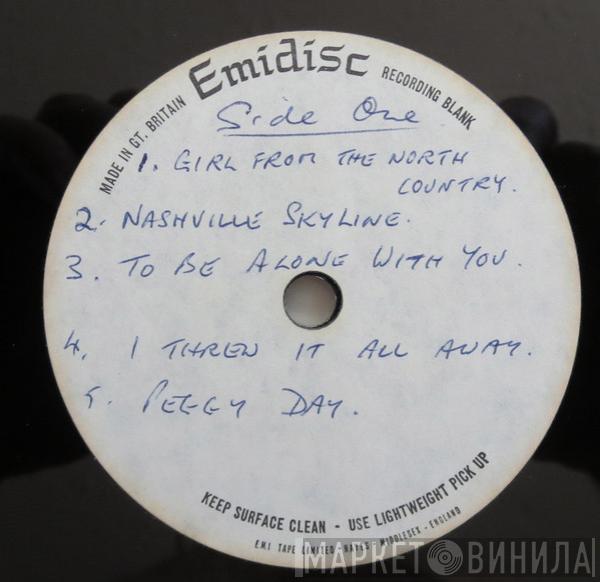 Emidisc
MADE IN GT. BRITAIN
RECORDING BLANK
Side One
1. GIRL FROM THE NORTH
COUNTRY.
2. NASHVILLE SKYLINE.
3. TO BE ALONE WITH YOU.
4. I THREW IT ALL AWAY.
5. PEGGY DAY.
KEEP SURFACE CLEAN - USE LIGHTWEIGHT PICK UP
E.M.I TAPE LIMITED - HAYES - MIDDLESEX - ENGLAND
МАРКЕТ ВИНИЛА